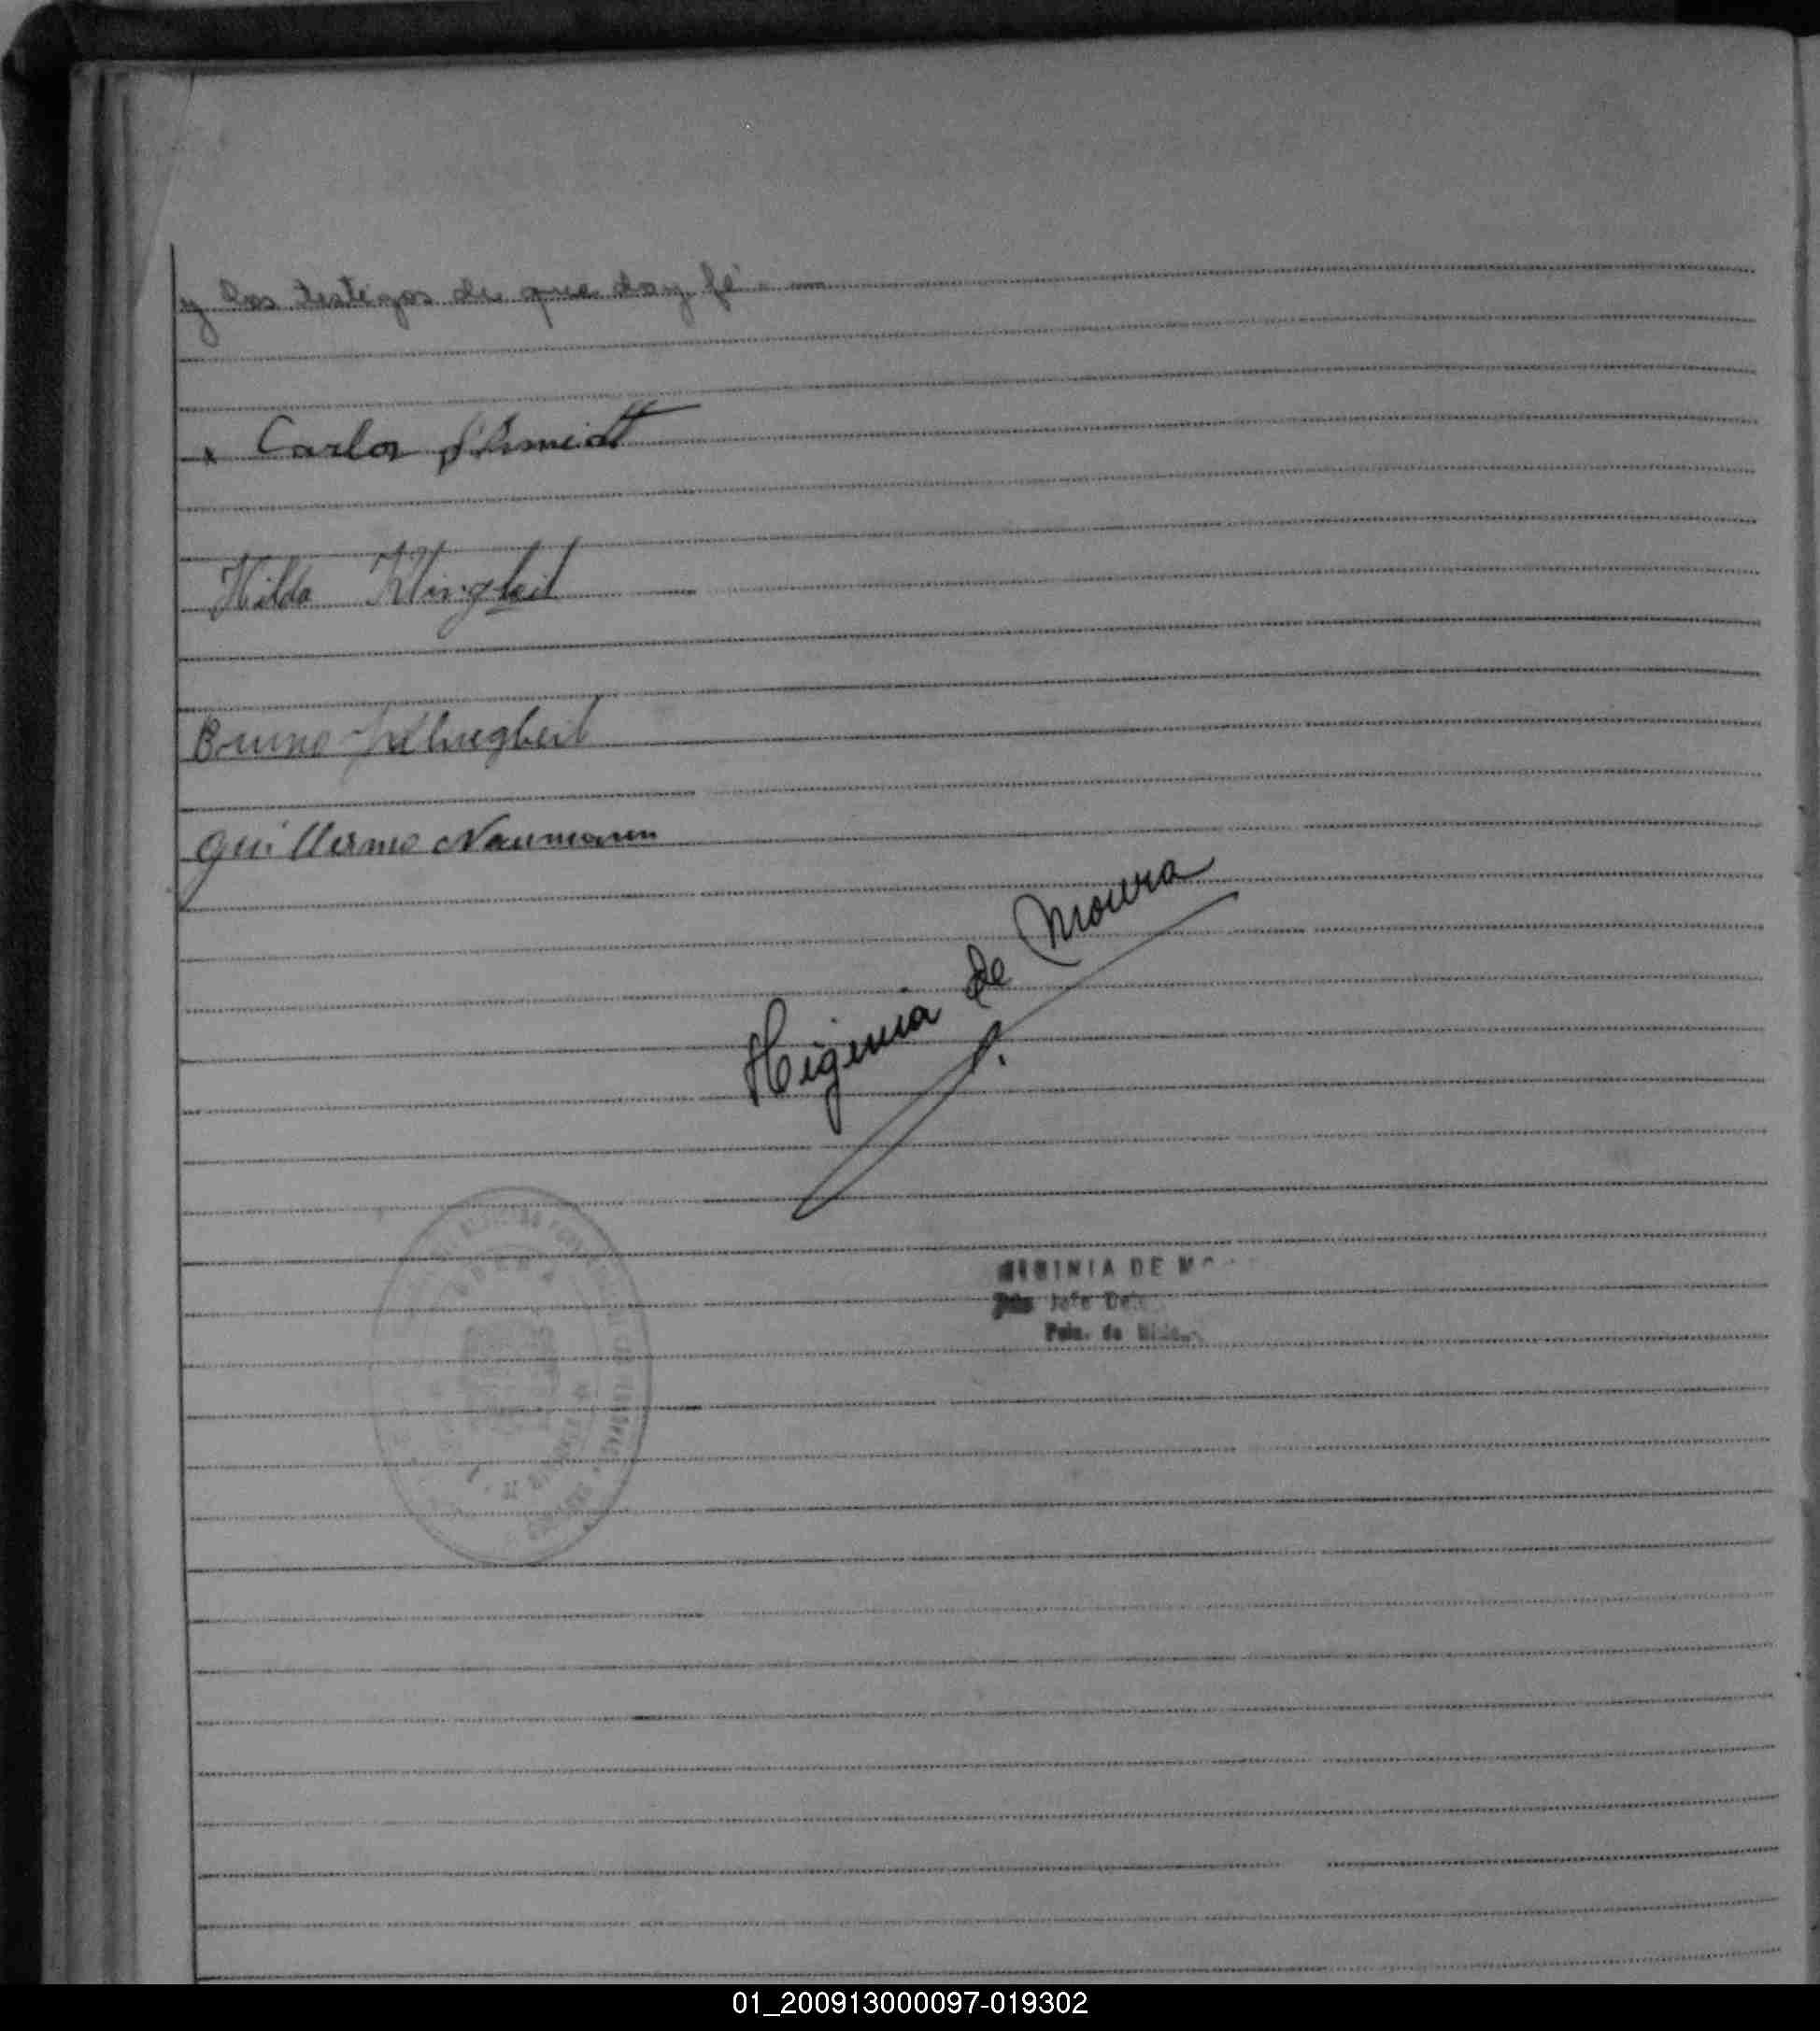 y los testigos de que doy fé
x Carlos Schmidt
Hilda Klingbeil
Bruno Klingbeil
Guillermo Naumann
Higinia de Moura
HIGINIA DE
Jefe
01_200913000097-019302